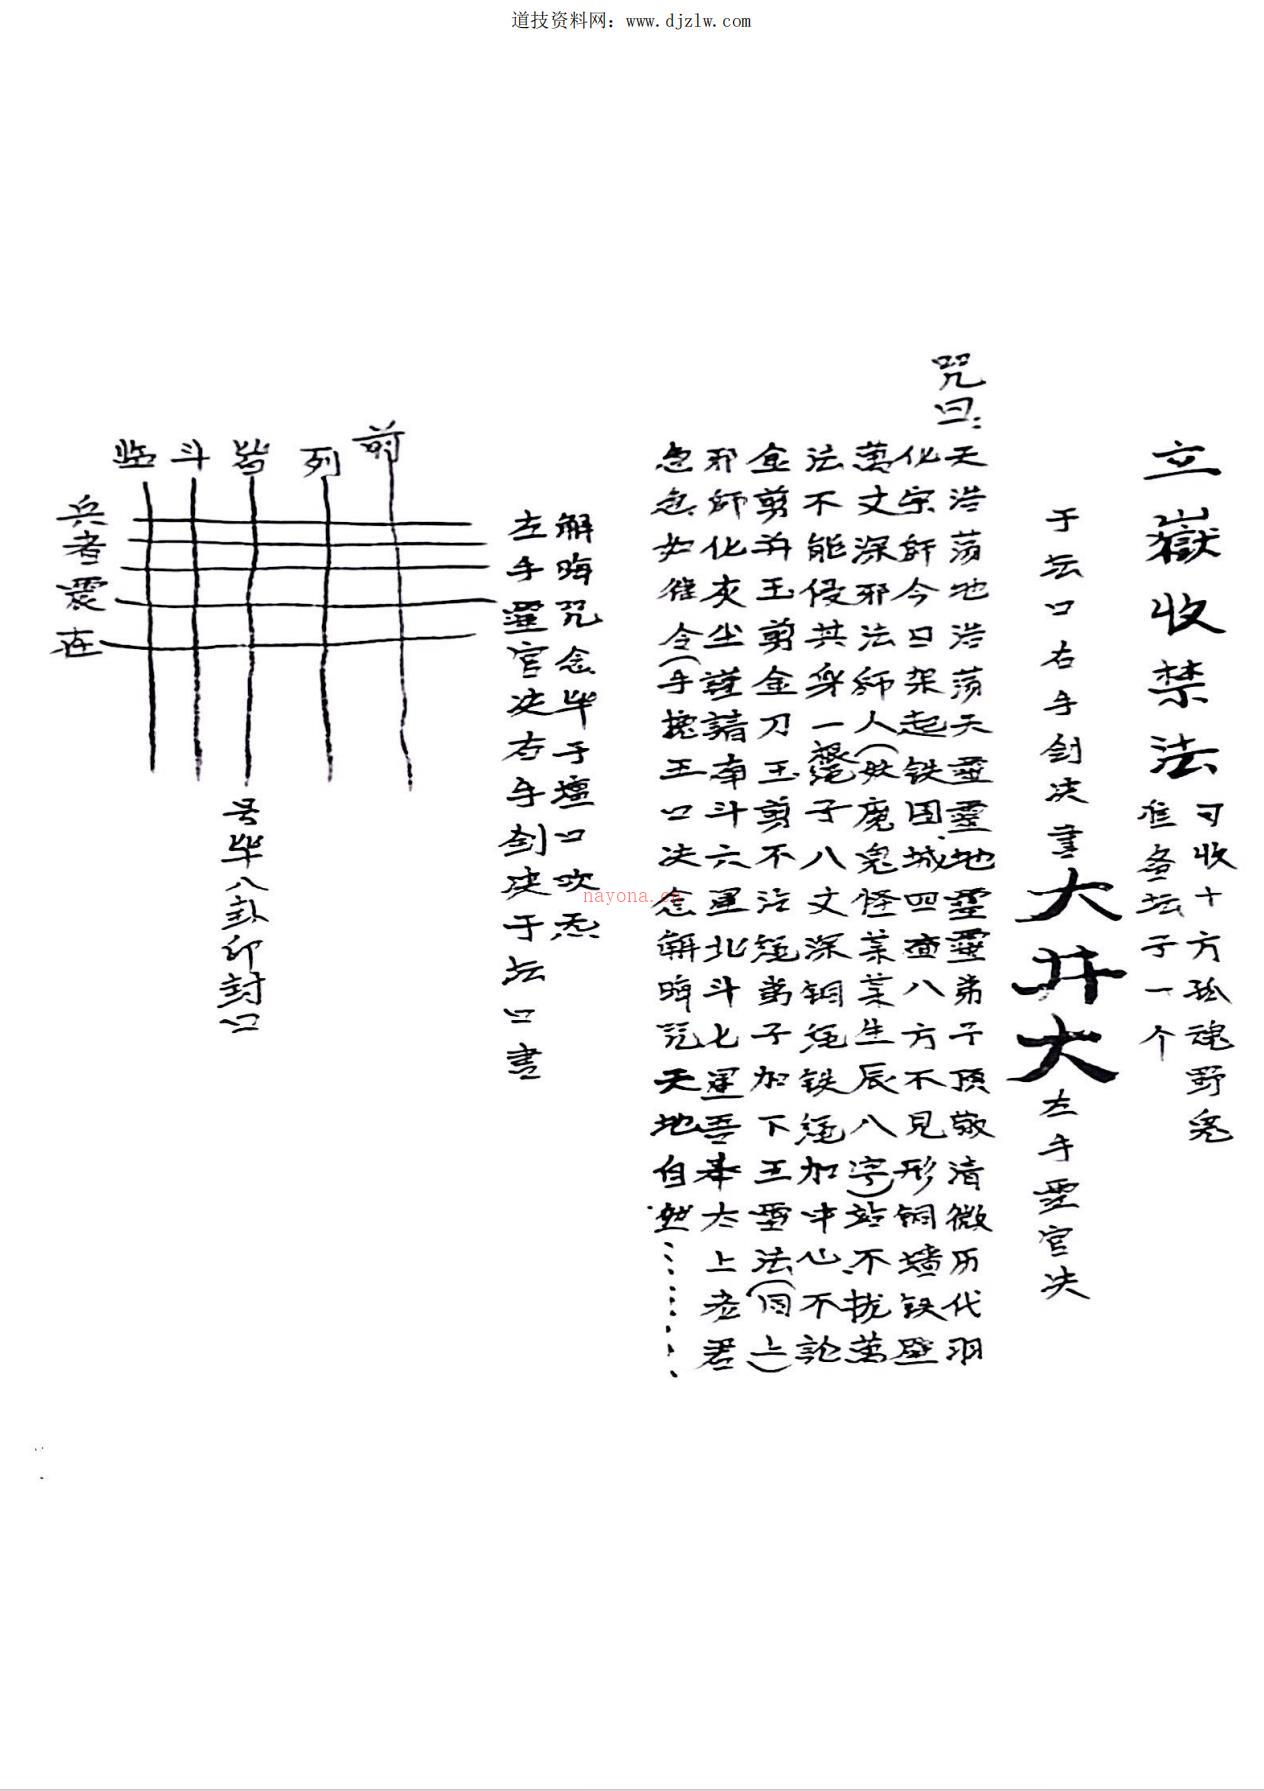 道技资料网：www.djzlw.com
立嶽收禁法
可收十方孤魂野鬼
准备坛子一个
于坛口右手剑决書大井大左手靈官决
咒曰：
天浩荡地浩荡天靈靈地靈靈弟子顶敬清微历代羽
化宗師今日架起铁国城四查八方不見形铜墙铁壁
萬丈深邪法師人(妖魔鬼怪某某生辰八字)站不拢萬
法不能侵其身一根绳子八丈深铜绳铁绳加中心不論
金剪并玉剪金刀玉剪不沾绳弟子加下五雷法(同上)
邪師化灰尘謹請南斗六星北斗七星吾奉太上老君
急急如律令(手挽五口决念解晦咒天地自然.......
解晦咒念毕于壇口吹炁
左手靈官决右手剑决于坛口書
前
列
皆
斗
临
兵
者
震
在
号毕八卦印封口
nayona.cn